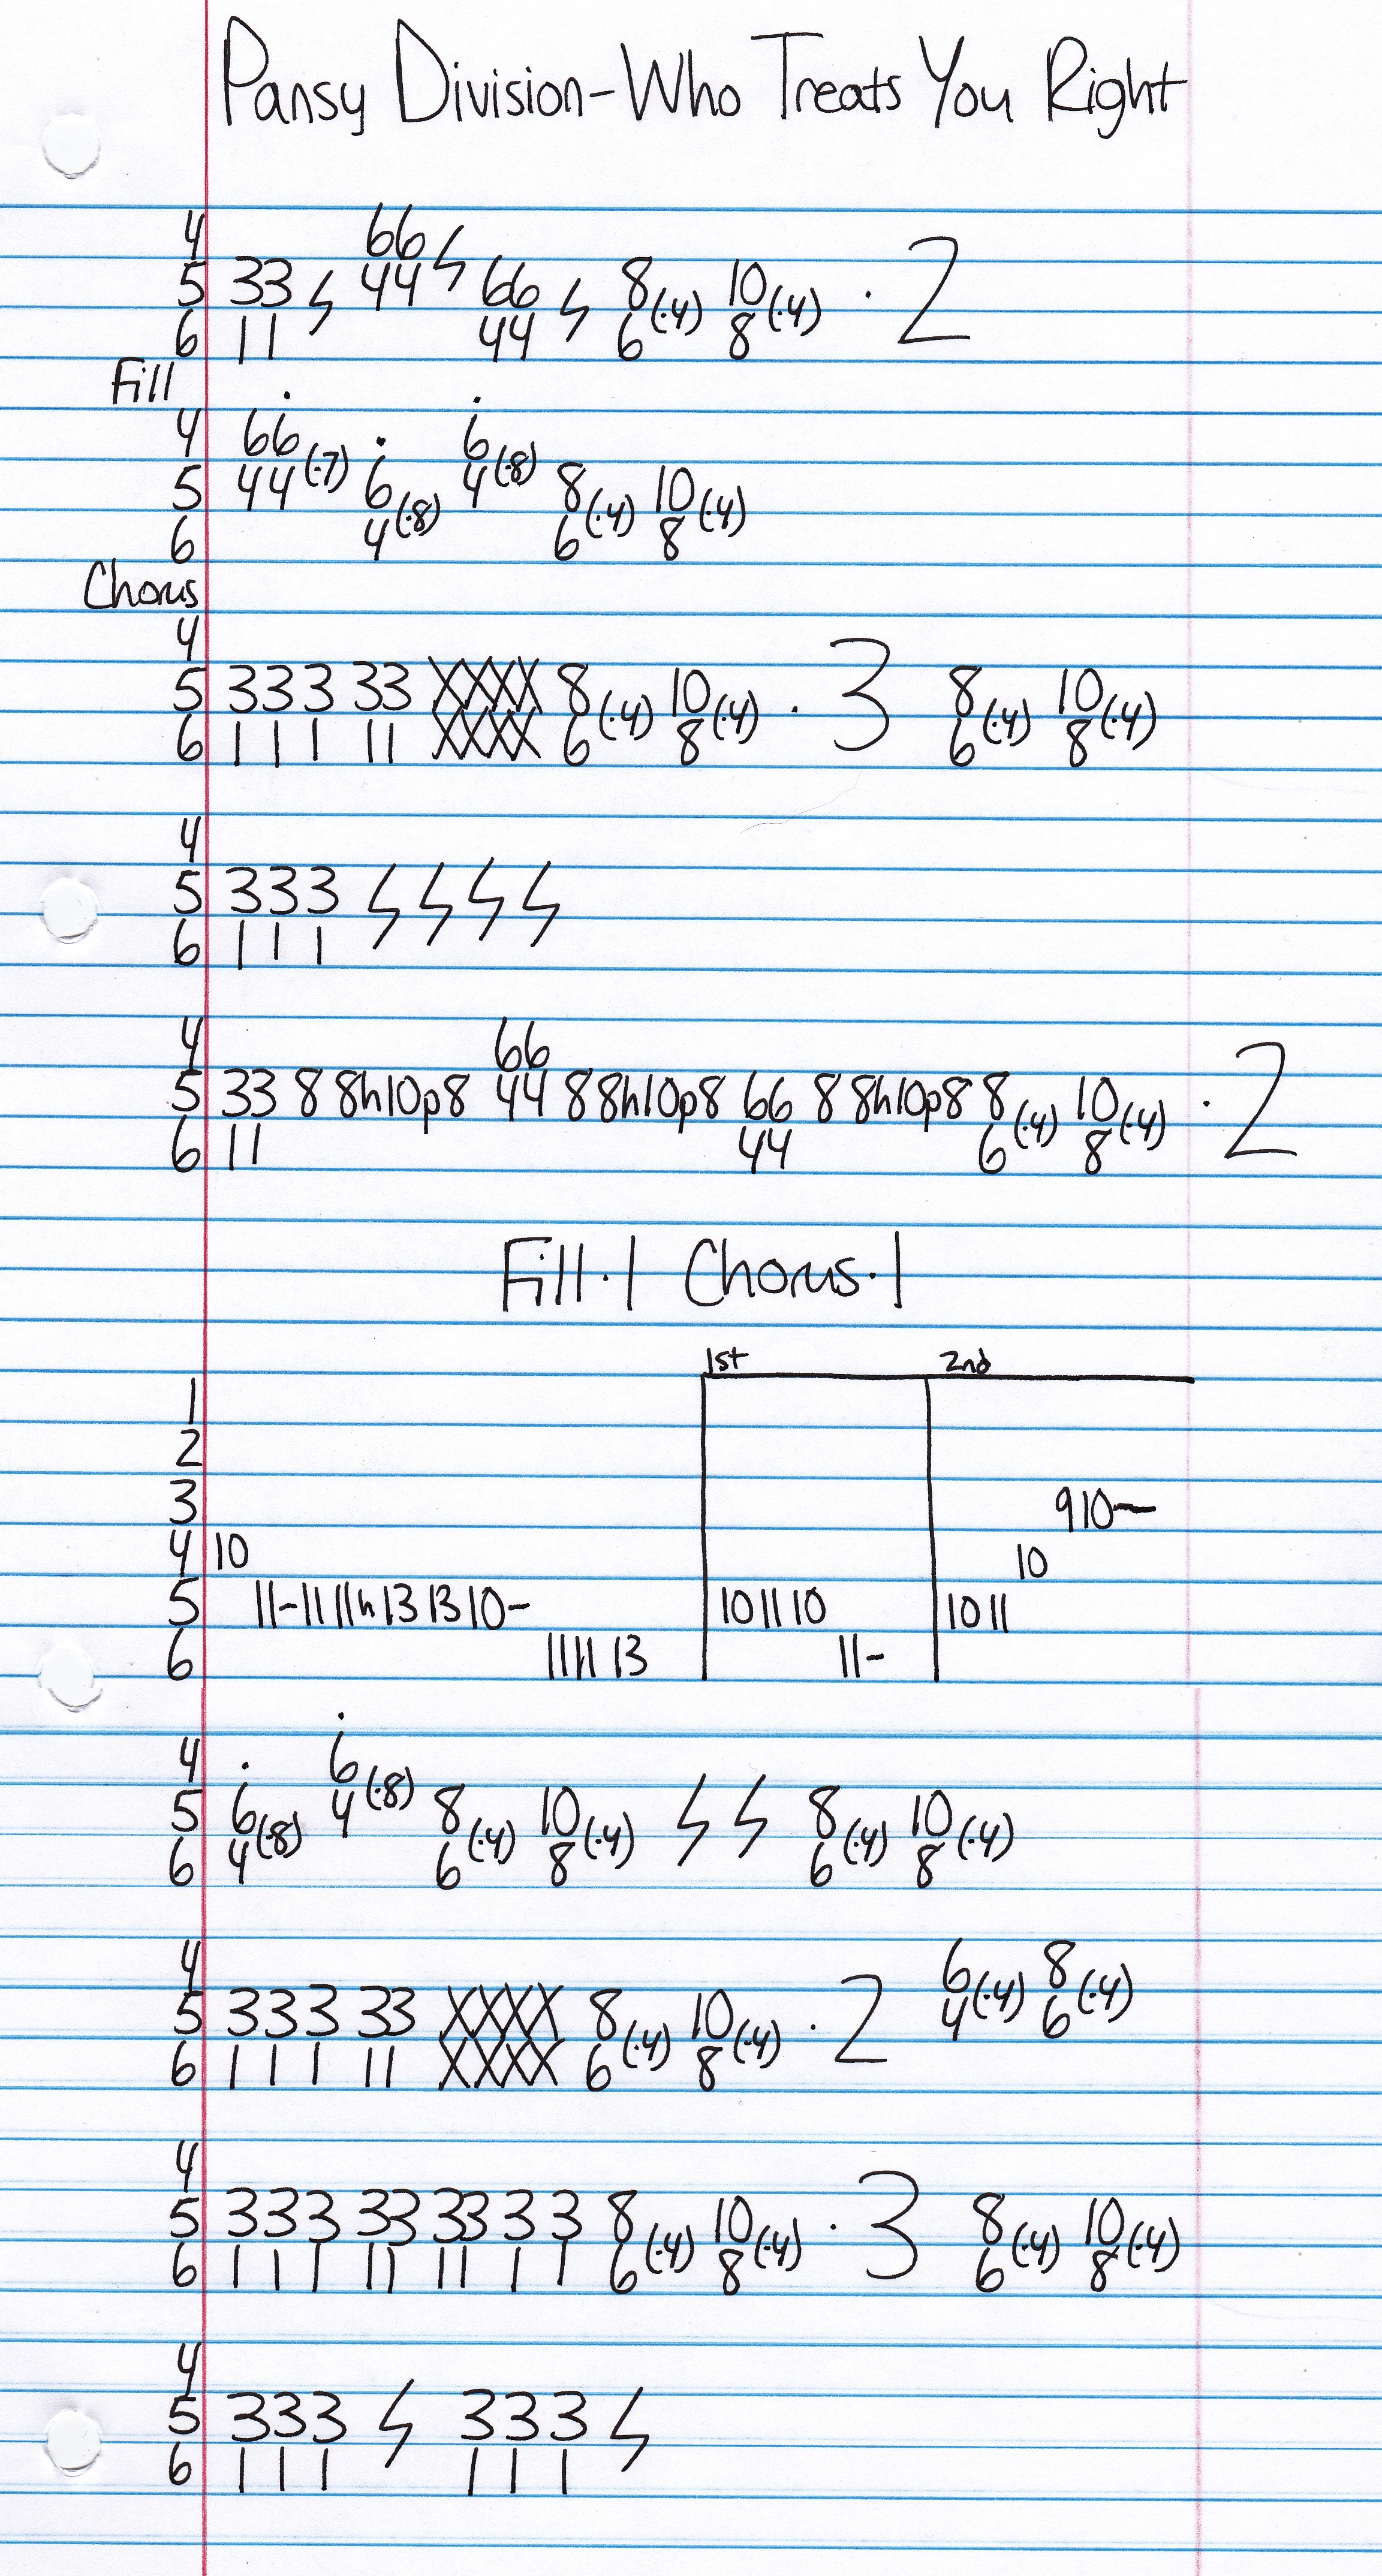 Pansy Division-Who Treats You Right
4 66
5 33 ϟ 44 ϟ 66 ϟ 8(·4) 10(·4) · 2
6 11 44 6 8
Fill
4 66 6
5 44(·7) 6 4(·8) 8 10
6 4(·8) 6(·4) 8(·4)
Chorus
4
5 333 33 XXXX 8(·4) 10(·4) · 3 8(·4) 10(·4)
6 111 11 XXXX 6 8 6 8
4
5 333 ϟ ϟ ϟ ϟ
6 111
4 66
5 33 8 8h10p8 44 8 8h10p8 66 8 8h10p8 8(·4) 10(·4) · 2
6 11 44 6 8
Fill·1 Chorus·1
1st 2nd
1
2
3 910—
4 10 10
5 11-11 11h13 13 10- 10 11 10 10 11
6 11 11 13 11-
4 6
5 6 4(·8) 8 10 ϟ ϟ 8 10
6 4(·8) 6(·4) 8(·4) 6(·4) 8(·4)
4 6 8
5 333 33 XXXX 8(·4) 10(·4) · 2 4(·4) 6(·4)
6 111 11 XXXX 6 8
4
5 333 33 33 3 3 8(·4) 10(·4) · 3 8(·4) 10(·4)
6 111 11 11 1 1 6 8 6 8
4
5 333 ϟ 333 ϟ
6 111 111